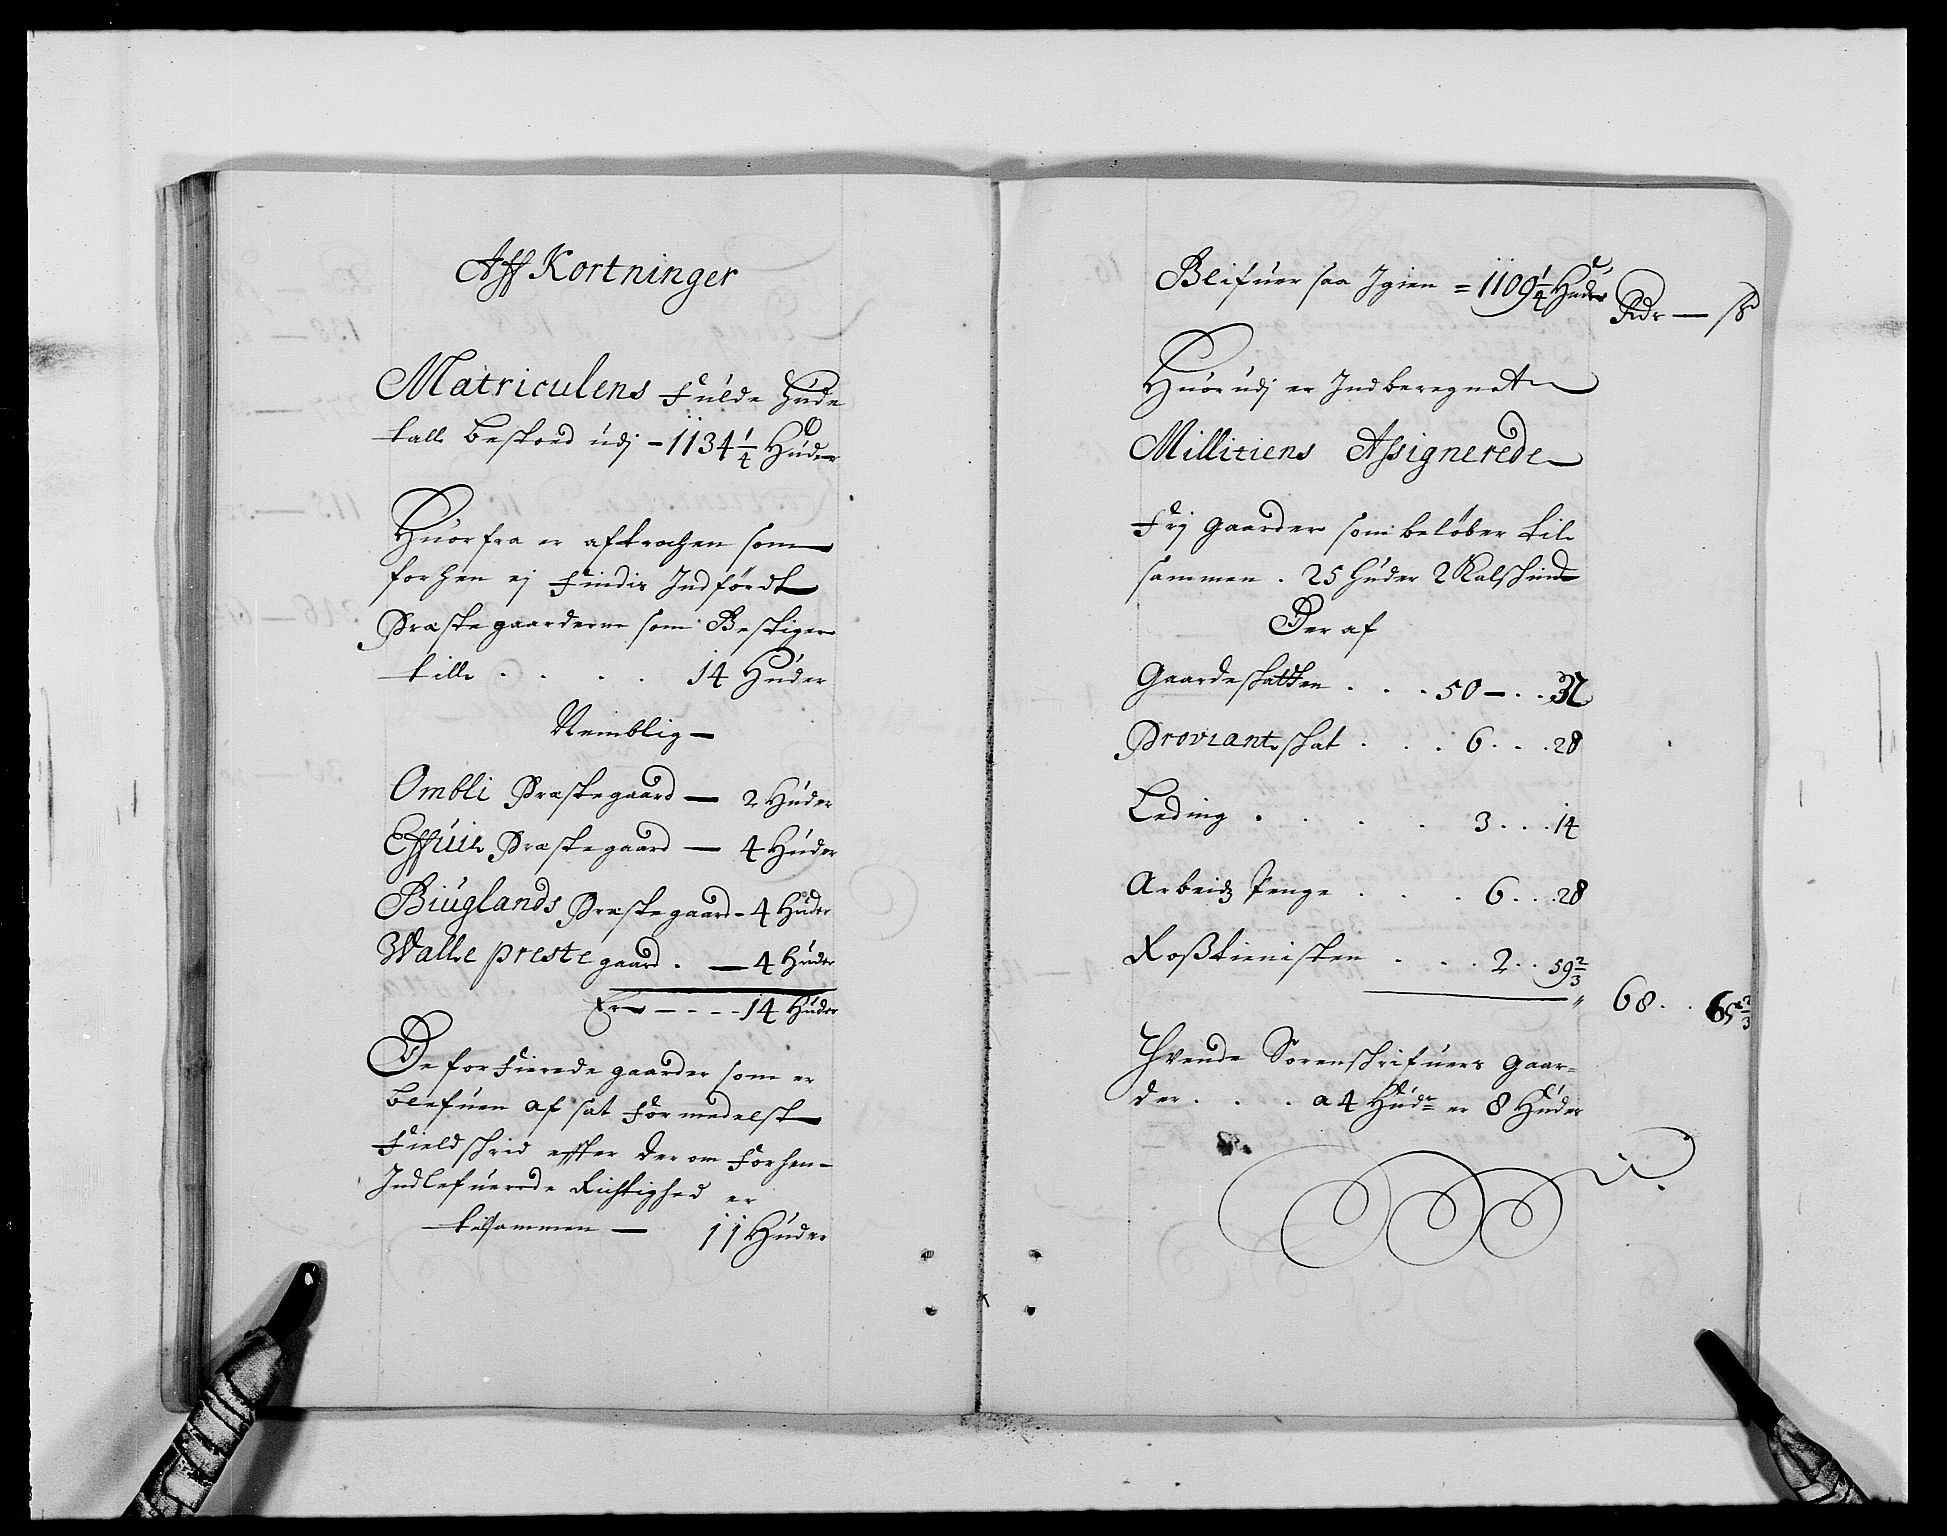 Aff Kortninger
Matriculens fulde Hude
tall bestoed udj - 1134 1/4 Huder
Huorfra er aftrochen som
forhen ej findis Indfördt
Præstegaarderne som Bestiger
till . . . . 14 Huder
Nemblig -
Ombli Præstegaard - 2 Huder
Præstegaard - 4 Huder
Biuglands Præstegaard - 4 Huder
Walle prestegaard . - 4 Huder
Er - - - - 14 Huder
De forfierede gaarder som er
blefuen af sat formedelst
Fieldschrid effter der om forhen-
Indlefuerede Richtighed er
tilsammen - 11 Huder
Blifuer saa Igien = 1109 1/4 Huder
Rdr - ß
Huorudj er Indberegnet
Millitiens Assignerede
frj gaarder som beløber til
sammen . 25 huder 2 Kalfschind
Der af
Gaardeskatten . . . 50 - . . 32
Proviantskat . . . 6 . . . 28
Leding . . . . 3 . . . 14
Arbeidz Penge . . . 6 . . . 28
Roßtienisten . . . 2 . . 59 2/3
68 . . 65 2/3
Thvende Sorenschrifuers gaar=
der . . . . a 4 Hudr er 8 Huder